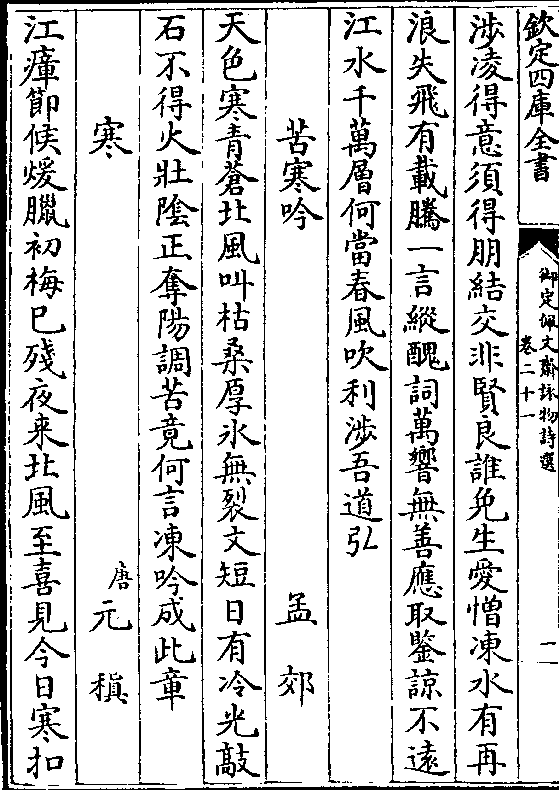 欽定四庫全書
御定佩文齋詠物詩選
卷二十一
二
涉凌得意須得朋結交非賢良誰免生愛憎凍水有再
浪失飛有載騰一言縱醜詞萬響無善應取鑒諒不遠
江水千萬層何當春風吹利涉吾道弘
苦寒吟 孟郊
天色寒青蒼北風叫枯桑厚氷無裂文短日有冷光敲
石不得火壯陰正奪陽調苦竟何言凍吟成此章
寒 唐元稹
江瘴節候煖臘初梅已殘夜来北風至喜見今日寒扣